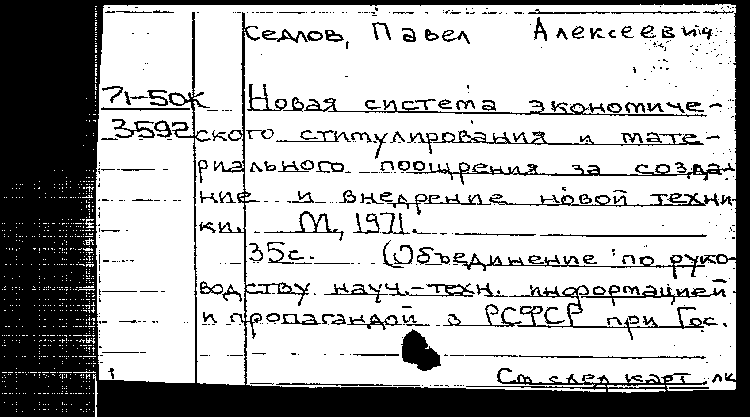 Седлов, Павел Алексеевич
71-50К Новая система экономиче-
3592 ского стимулирования и мате-
риального поощрения за созда-
ние и внедрение новой техни-
ки. М., 1971.
35с. (Объединение по руко-
водству науч.-техн. информацией
и пропагандой в РСФСР при Гос.
См. след. карт.